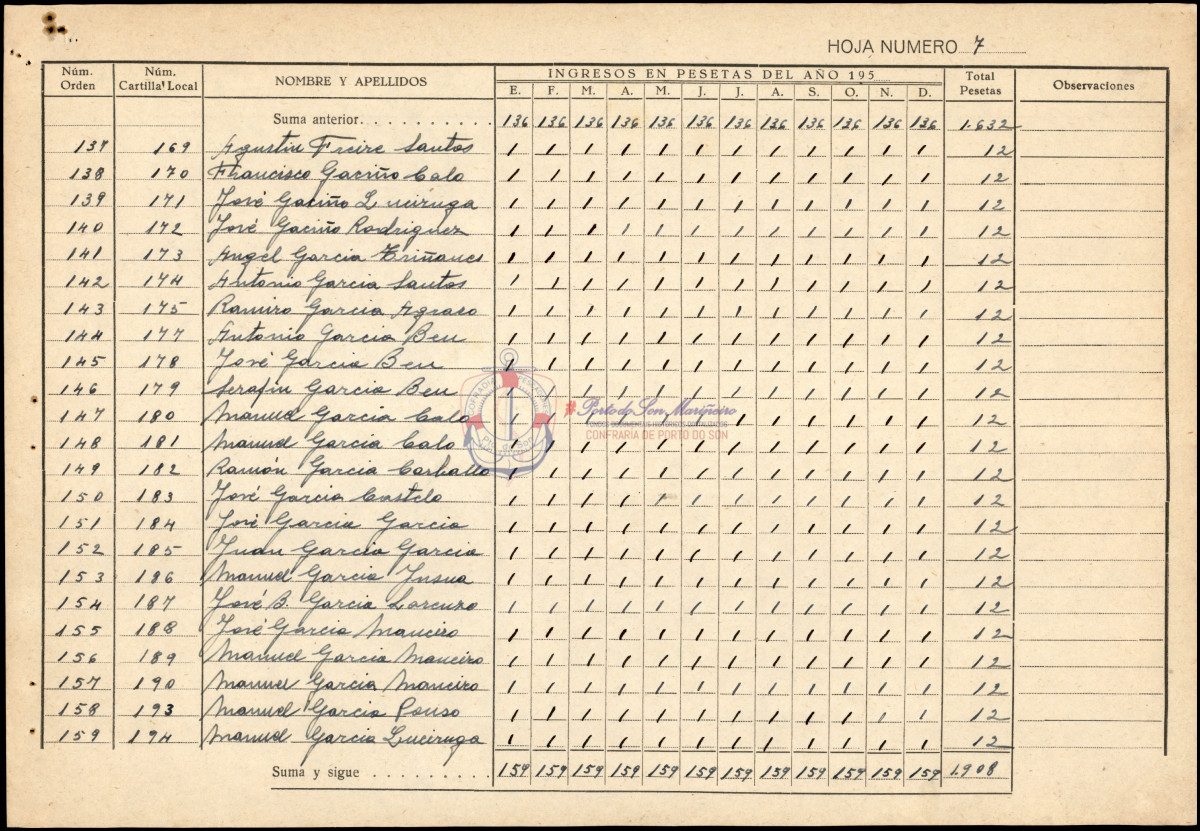 HOJA NUMERO 7
Núm. Orden Núm. Cartilla Local NOMBRE Y APELLIDOS INGRESOS EN PESETAS DEL AÑO 195 Total Pesetas Observaciones
E. F. M. A. M. J. J. A. S. O. N. D.
Suma anterior 136 136 136 136 136 136 136 136 136 136 136 136 1.632
137 169 Agustin Freire Santos 1 1 1 1 1 1 1 1 1 1 1 1 12
138 170 Francisco Gaciño Calo 1 1 1 1 1 1 1 1 1 1 1 1 12
139 171 José Gaciño Luciruga 1 1 1 1 1 1 1 1 1 1 1 1 12
140 172 José Gaciño Rodriguez 1 1 1 1 1 1 1 1 1 1 1 1 12
141 173 Angel Garcia Triñanes 1 1 1 1 1 1 1 1 1 1 1 1 12
142 174 Antonio Garcia Santos 1 1 1 1 1 1 1 1 1 1 1 1 12
143 175 Ramiro Garcia Agraso 1 1 1 1 1 1 1 1 1 1 1 1 12
144 177 Antonio Garcia Ben 1 1 1 1 1 1 1 1 1 1 1 1 12
145 178 José Garcia Ben 1 1 1 1 1 1 1 1 1 1 1 1 12
146 179 Serafin Garcia Ben 1 1 1 1 1 1 1 1 1 1 1 12
147 180 Manuel Garcia Calo 1 1 1 1 1 1 1 1 12
148 181 Manuel Garcia Calo 1 1 1 1 1 1 1 1 1 1 1 1 12
149 182 Ramón Garcia Carballo 1 1 1 1 1 1 1 1 1 1 1 1 12
150 183 José Garcia Castelo 1 1 1 1 1 1 1 1 1 1 1 1 12
151 184 José Garcia Garcia 1 1 1 1 1 1 1 1 1 1 1 1 12
152 185 Juan Garcia Garcia 1 1 1 1 1 1 1 1 1 1 1 1 12
153 186 Manuel Garcia Insua 1 1 1 1 1 1 1 1 1 1 1 1 12
154 187 José B. Garcia Lorenzo 1 1 1 1 1 1 1 1 1 1 1 1 12
155 188 José Garcia Maneiro 1 1 1 1 1 1 1 1 1 1 1 1 12
156 189 Manuel Garcia Maneiro 1 1 1 1 1 1 1 1 1 1 1 1 12
157 190 Manuel Garcia Maneiro 1 1 1 1 1 1 1 1 1 1 1 1 12
158 193 Manuel Garcia Pouso 1 1 1 1 1 1 1 1 1 1 1 1 12
159 194 Manuel Garcia Luciruga 1 1 1 1 1 1 1 1 1 1 1 1 12
Suma y sigue 159 159 159 159 159 159 159 159 159 159 159 159 1.908
#Porto do Son Mariñeiro
CONFRARIA DE PORTO DO SON